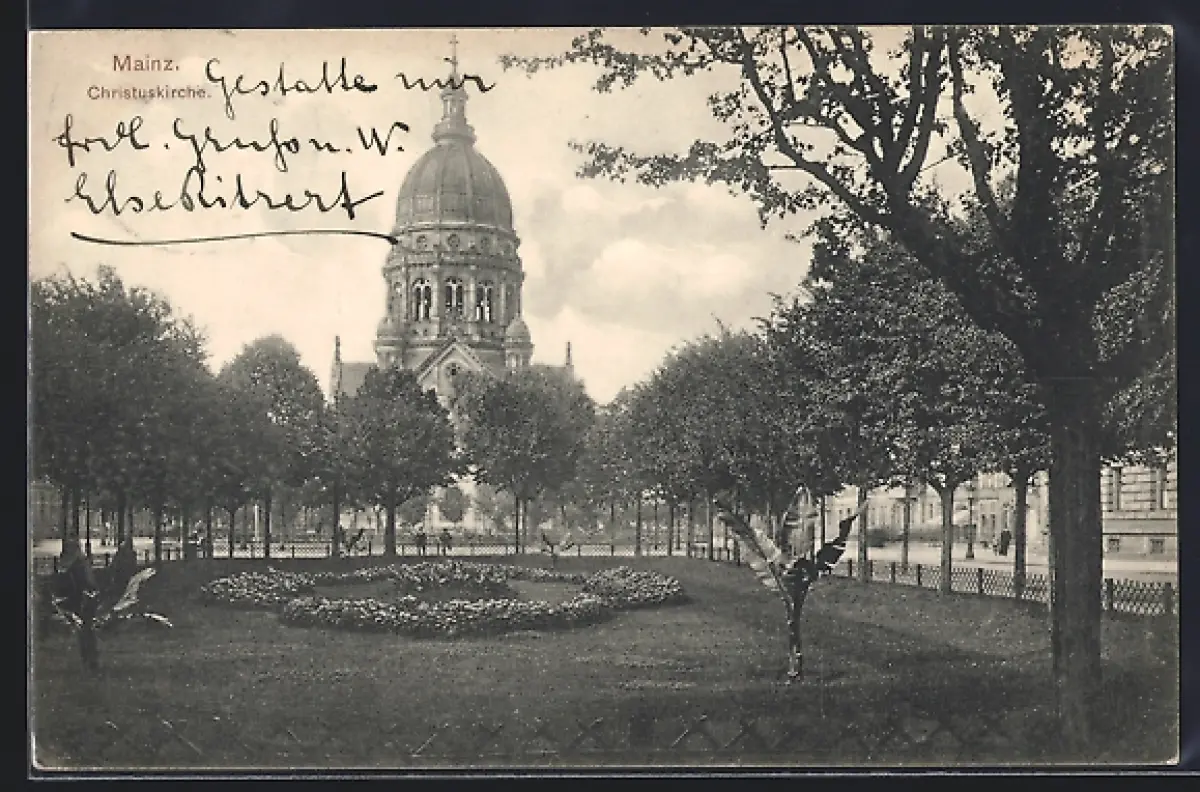 Mainz.
Christuskirche.
Gestatte mir
frdl. Gruß
Else Ritzert